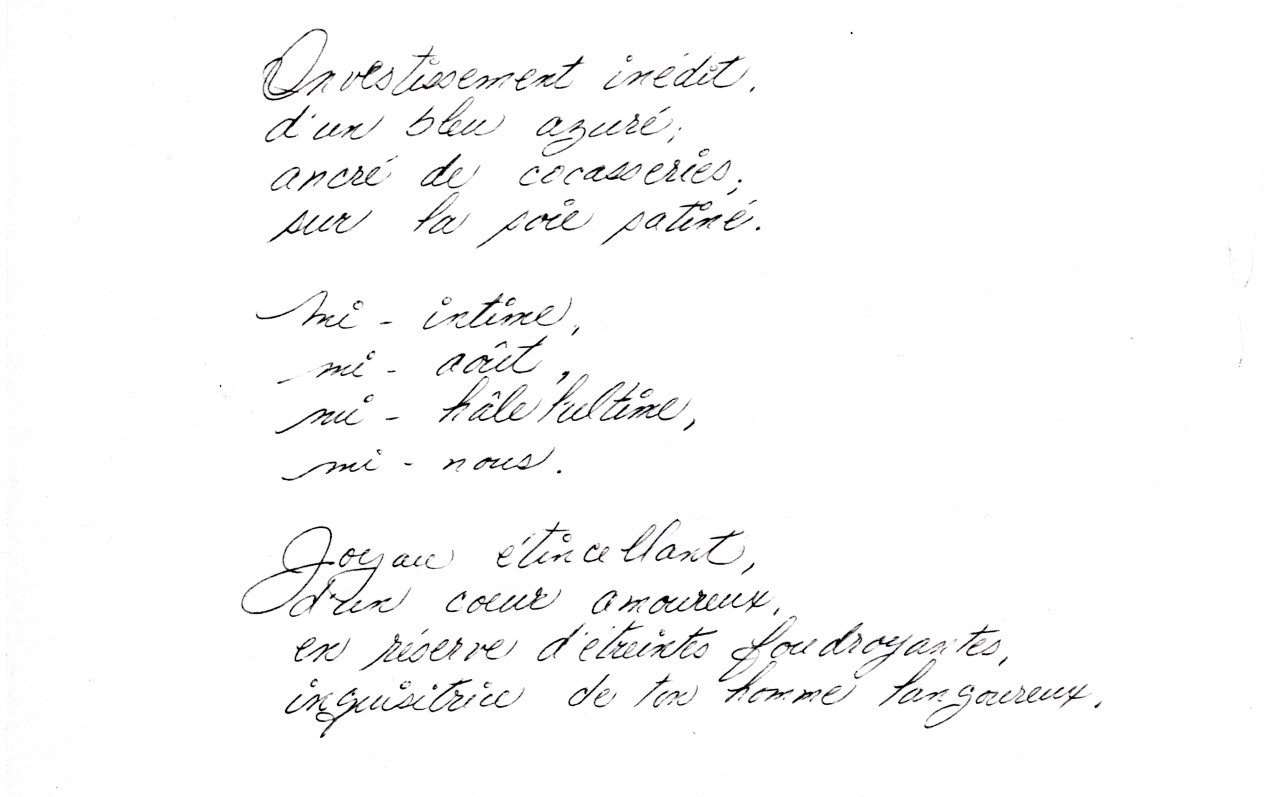 Investissement inédit,
d'un bleu azuré,
ancré de cocasseries,
sur la soie satiné.
mi - intime,
mi - août,
mi - hâle l'ultime,
mi - nous.
Joyau étincellant,
d'un coeur amoureux,
en réserve d'étreintes foudroyantes,
inquisitrice de ton homme langoureux.